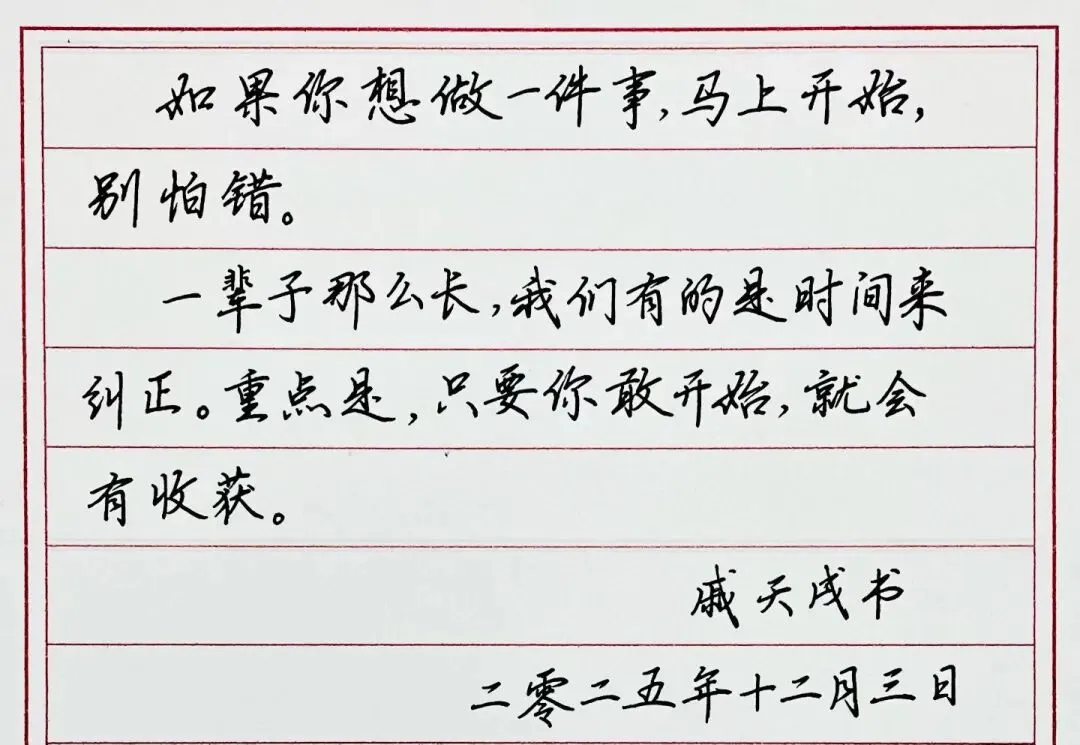 如果你想做一件事,马上开始,
别怕错。
一辈子那么长,我们有的是时间来
纠正。重点是,只要你敢开始,就会
有收获。
戚天戌书
二零二五年十二月三日